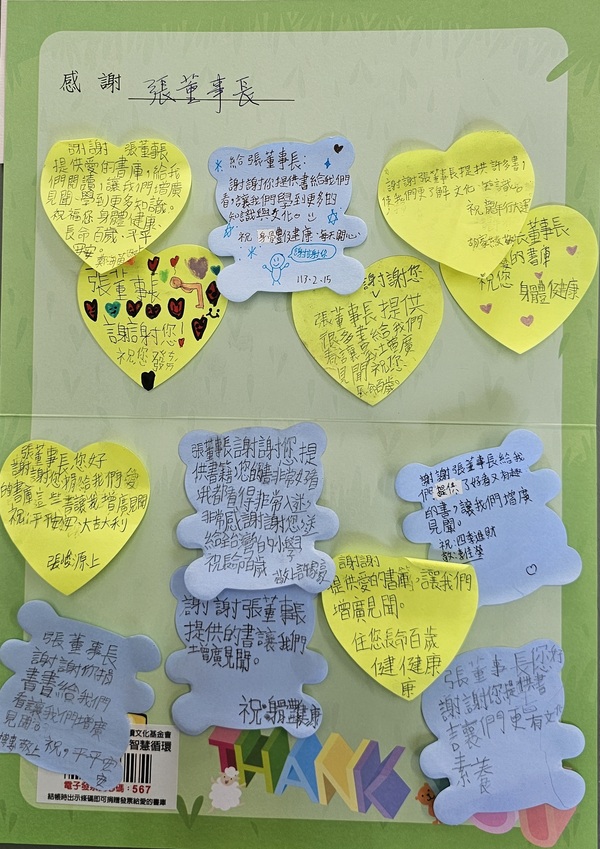 感謝 張董事長
謝謝 張董事長
提供愛的書庫,給我
們閱讀,讓我們增廣
見聞、學到更多知識。
祝福您身體健康、
長命百歲、平平
安安。
給張董事長:
謝謝你提供書給我們
看,讓我們學到更多的
知識與文化。
祝 身體健康、每天開心
謝謝你
113.2.15
謝謝張董事長提供許多書,
使我們更了解文化、
祝龍年行大運
董事長
的書庫
祝您
身體健康
張
董事長
謝謝您!
祝您
謝謝您
張董事長提供
很多書給我們
看讓我們增廣
見聞祝您
長命百歲。
張董事長您好
謝謝您捐給我們愛
的書庫這些書讓我增廣見聞
祝:平安、大吉大利
張董事長謝謝您提
供書籍,您的書非常好看
我都看得非常入迷,
非常感謝謝您,送
給全台灣的小學
祝長命百歲
謝謝張董事長給我
們提供了好看又有趣
的書,讓我們增廣
見聞。
祝:四季進財
謝謝
提供愛的書庫,讓我們
增廣見聞。
住您長命百歲
健健康
康
謝謝張董事長
提供的書讓我們
增廣見聞。
祝:身體健康
張董事長
謝謝你捐
書給我們
看讓我們增廣
見聞。
敬上 祝,平平安
安
張董事長您好
謝謝你提供書
讓們更有文化
素養
文化基金會
智慧循環
電子發票 碼:567
結帳時出示條碼即可捐贈發票給愛的書庫
THANK
YOU